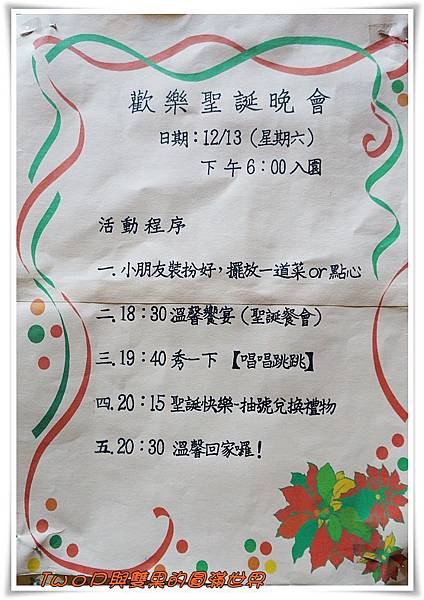 歡樂聖誕晚會
日期：12/13（星期六）
下午6：00入園
活動程序
一.小朋友裝扮好，擺放一道菜or點心
二.18：30溫馨饗宴（聖誕餐會）
三.19：40秀一下【唱唱跳跳】
四.20：15聖誕快樂-抽號兌換禮物
五.20：30 溫馨回家囉！
TwoP與雙果的圓滿世界